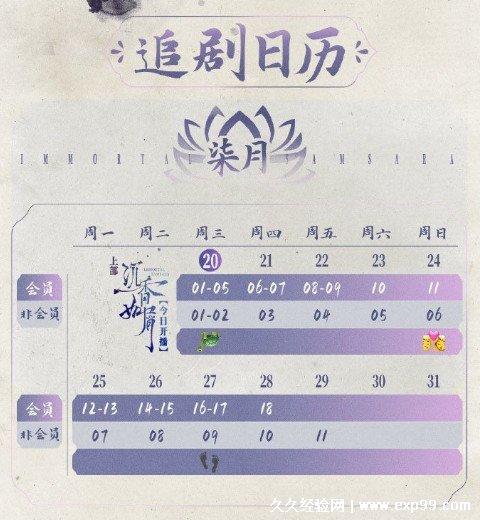 追剧日历
IMMORTAL SAMSARA
柒月
周一 周二 周三 周四 周五 周六 周日
20 21 22 23 24
上部 沉香如屑 【今日开播】
会员 01-05 06-07 08-09 10 11
非会员 01-02 03 04 05 06
25 26 27 28 29 30 31
会员 12-13 14-15 16-17 18
非会员 07 08 09 10 11
久久经验网 | www.exp99.com